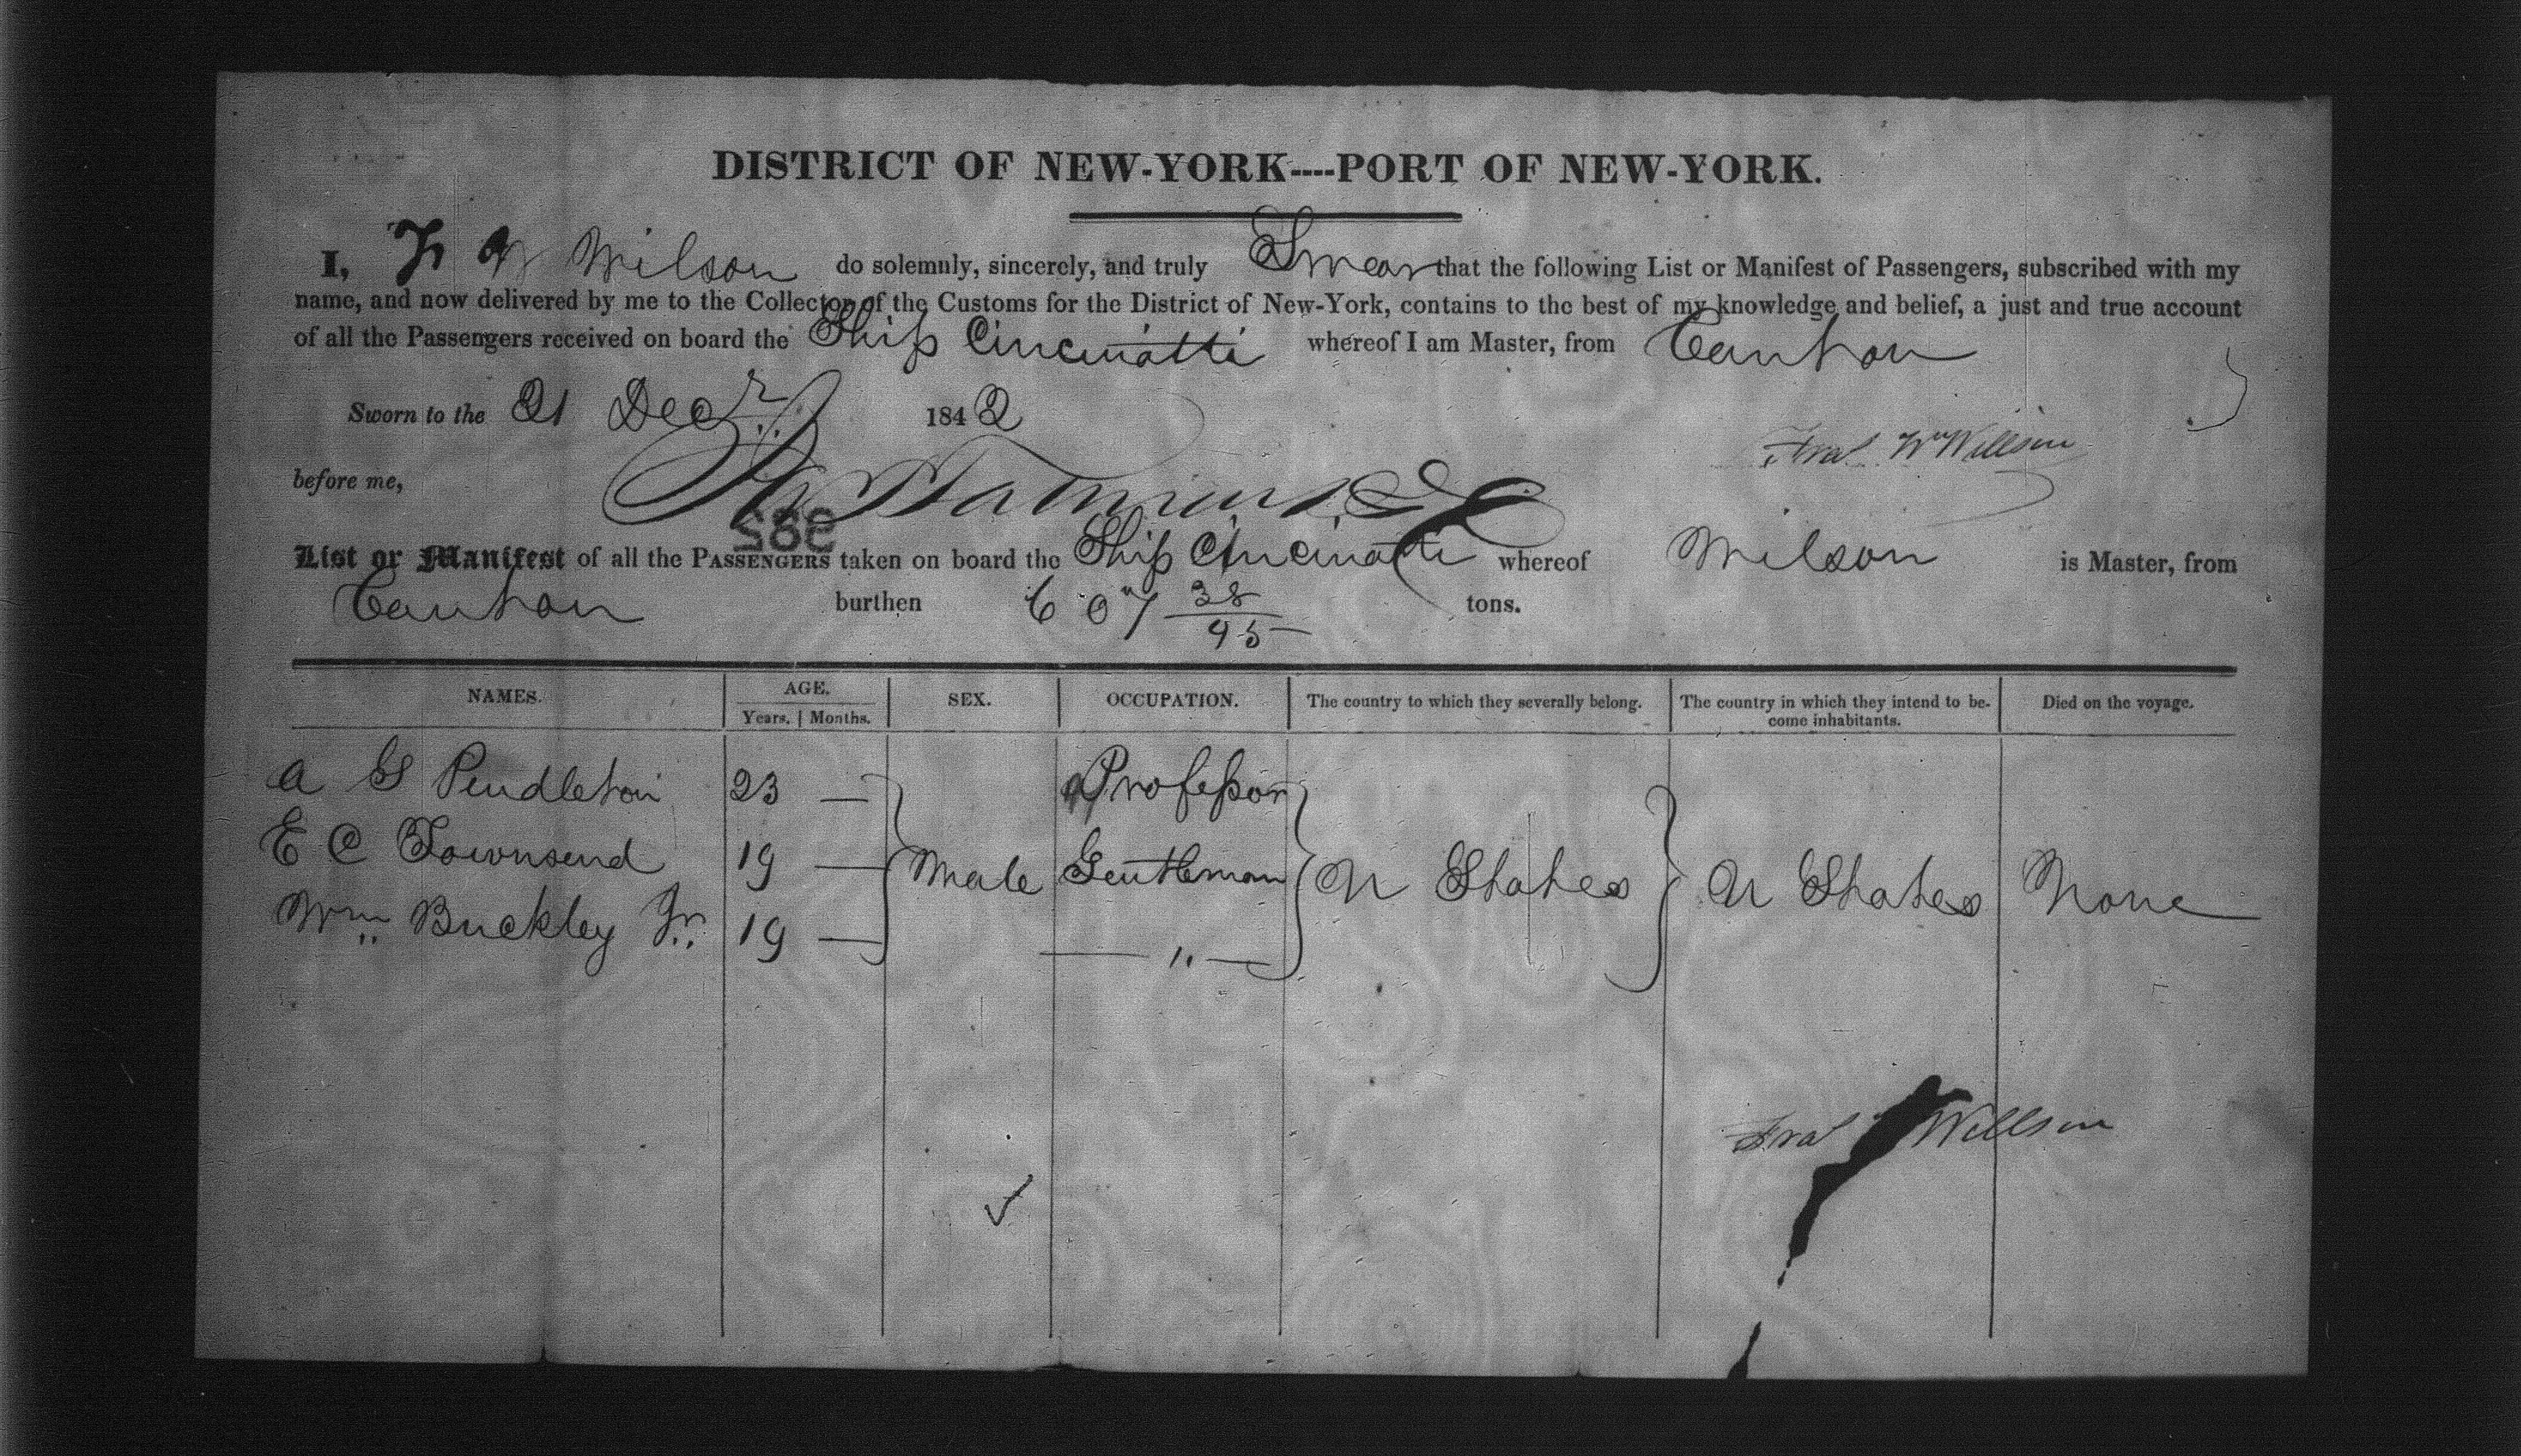 DISTRICT OF NEW-YORK----PORT OF NEW-YORK.
I, F W Wilson do solemnly, sincerely, and truly Swear that the following List or Manifest of Passengers, subscribed with my
name, and now delivered by me to the Collector of the Customs for the District of New-York, contains to the best of my knowledge and belief, a just and true account
of all the Passengers received on board the Ship Cincinatti whereof I am Master, from Canton
Sworn to the 21 Decr 1842
Wm Willson
before me,
982
List or Manifest of all the PASSENGERS taken on board the Ship Cincinatti whereof Wilson is Master, from
Canton burthen 607 38/95 tons.
NAMES. AGE. SEX. OCCUPATION. The country to which they severally belong. The country in which they intend to be-
Years. Months. come inhabitants. Died on the voyage.
A G Pendleton 23 — Professor
E C Townsend 19 — Male Gentleman U States U States None
Wm Buckley Jr. 19 — — " —
Willson